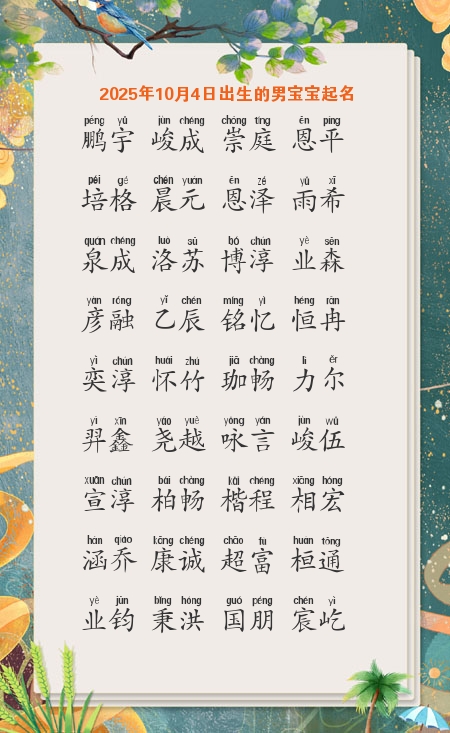 2025年10月4日出生的男宝宝起名
péng yǔ jùn chéng chóng tíng ēn píng
鹏宇 峻成 崇庭 恩平
péi gé chén yuán ēn zé yǔ xī
培格 晨元 恩泽 雨希
quán chéng luò sū bó chún yè sēn
泉成 洛苏 博淳 业森
yàn róng yǐ chén míng yì héng rǎn
彦融 乙辰 铭忆 恒冉
yì chún huái zhú jiā chàng lì ěr
奕淳 怀竹 珈畅 力尔
yì xīn yáo yuè yǒng yán jùn wǔ
羿鑫 尧越 咏言 峻伍
xuān chún bǎi chàng kǎi chéng xiāng hóng
宣淳 柏畅 楷程 相宏
hán qiáo kāng chéng chāo fù huán tōng
涵乔 康诚 超富 桓通
yè jūn bǐng hóng guó péng chén yì
业钧 秉洪 国朋 宸屹